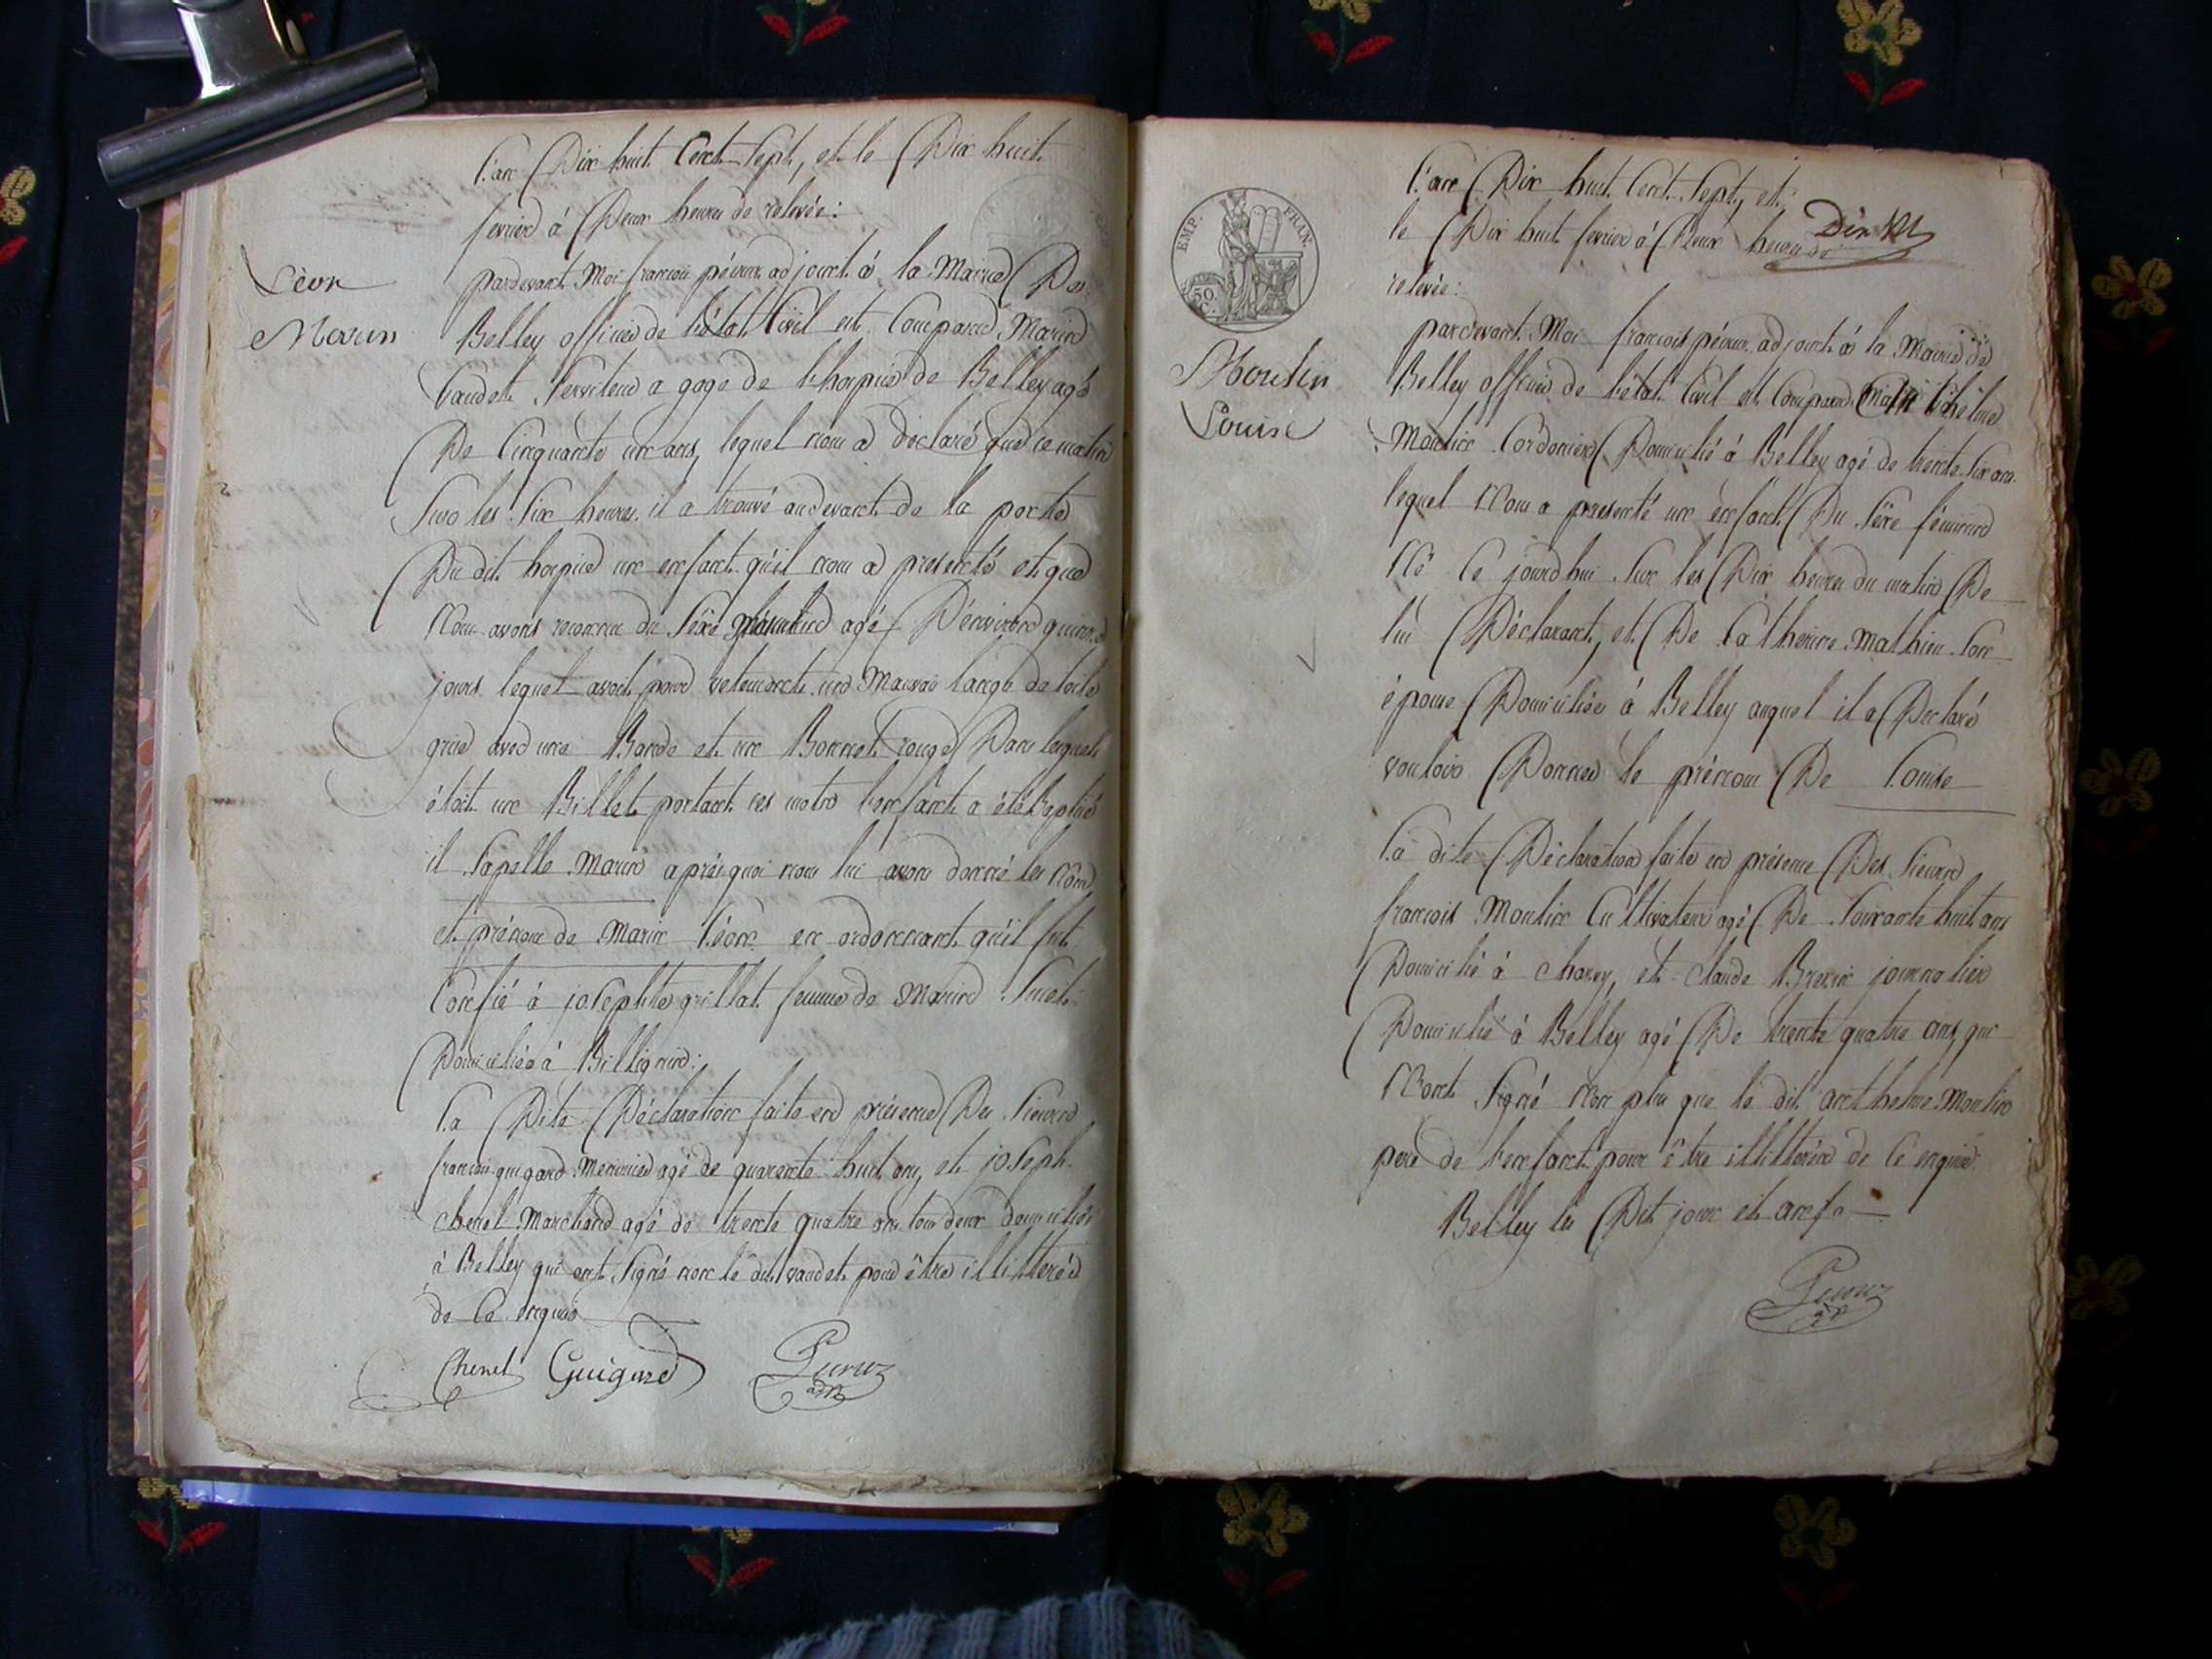 L'an Dix huit Cent Sept, et le Dix huit
fevrier à Deux heures de relevée:
Léon
Marin
pardevant Moi francois péuruz adjoint à la Mairie De
Belley officier de l'état Civil est Comparu Marin
Vaudet Serviteur a gage de l'hospice de Belley agé
De Cinquante un ans, lequel nous a declaré que ce matin
Sur les Six heures il a trouvé audevant de la porte
Du dit hospice un enfant qu'il nous a presenté et que
Nous avons reconnu du Sexe masculin agé D'environ quinze
jours lequel avoit pour vetement un Mauvais lange de toile
grise avec une Bande et un Bonnet rouge Dans lequel
étoit un Billet portant ces mots l'enfant a été Baptisé
il S'apelle Marin après quoi nous lui avons donné les Nom
et prénom de Marin Léon en ordonnant qu'il fut
Confié à josephte grillat femme de Marin Suet
Domiciliée à Billignin:
La Dite Déclaration faite en présence Des Sieurs
francois guigard Menuisier agé de quarente huit ans, et joseph
Chenel Marchand agé de trente quatre ans tous deux domiciliés
à Belley qui ont Signé non le dit vaudet pour être illittéré
de Ce enquis
Chenel Guigard Peuruz
adj
EMP. FRAN.
50
C.
L'an Dix huit Cent Sept, et
le Dix huit fevrier à Deux heures de
relevée:
Moulin
Louise
pardevant Moi francois péuruz adjoint à la Mairie de
Belley officier de l'état Civil est Comparu anthelme
Moulin Cordonier Domicilié à Belley agé de trente Six ans
lequel Nous a presenté un enfant Du Sexe féminin
Né Ce jourdhui Sur les Dix heures du matin De
lui Déclarant, et De Catherine Mathieu Son
épouse Domiciliée à Belley auquel il a Déclaré
vouloir Donner le prénom De Louise
La dite Déclaration faite en présence Des Sieurs
francois Moulin Cultivateur agé De Soixante huit ans
Domicilié à Chazey, et Claude Brevin journalier
Domicilié à Belley agé De trente quatre ans, qui
N'ont Signé Non plus que le dit anthelme Moulin
pere de l'enfant pour être illittérés de Ce enquis
Belley les Dit jour et an
Peuruz
adj